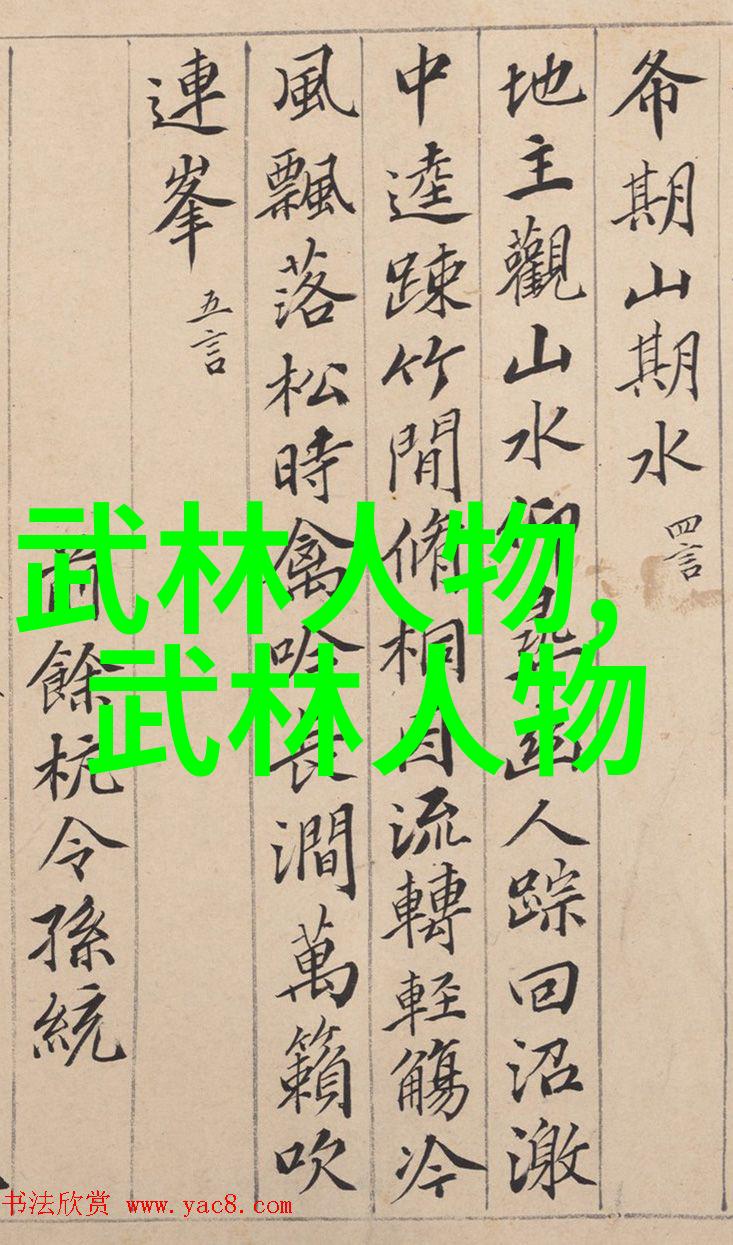 希期山期水 四言
地主觀山水仰尋幽人踪回沼激
中逵踈竹間脩桐因流轉輕觴冷
風飄落松時禽吟長澗萬籟吹
連峯 五言
前餘杭令孫統
武林人物,
武林人物
书法欣赏 www.yac8.com